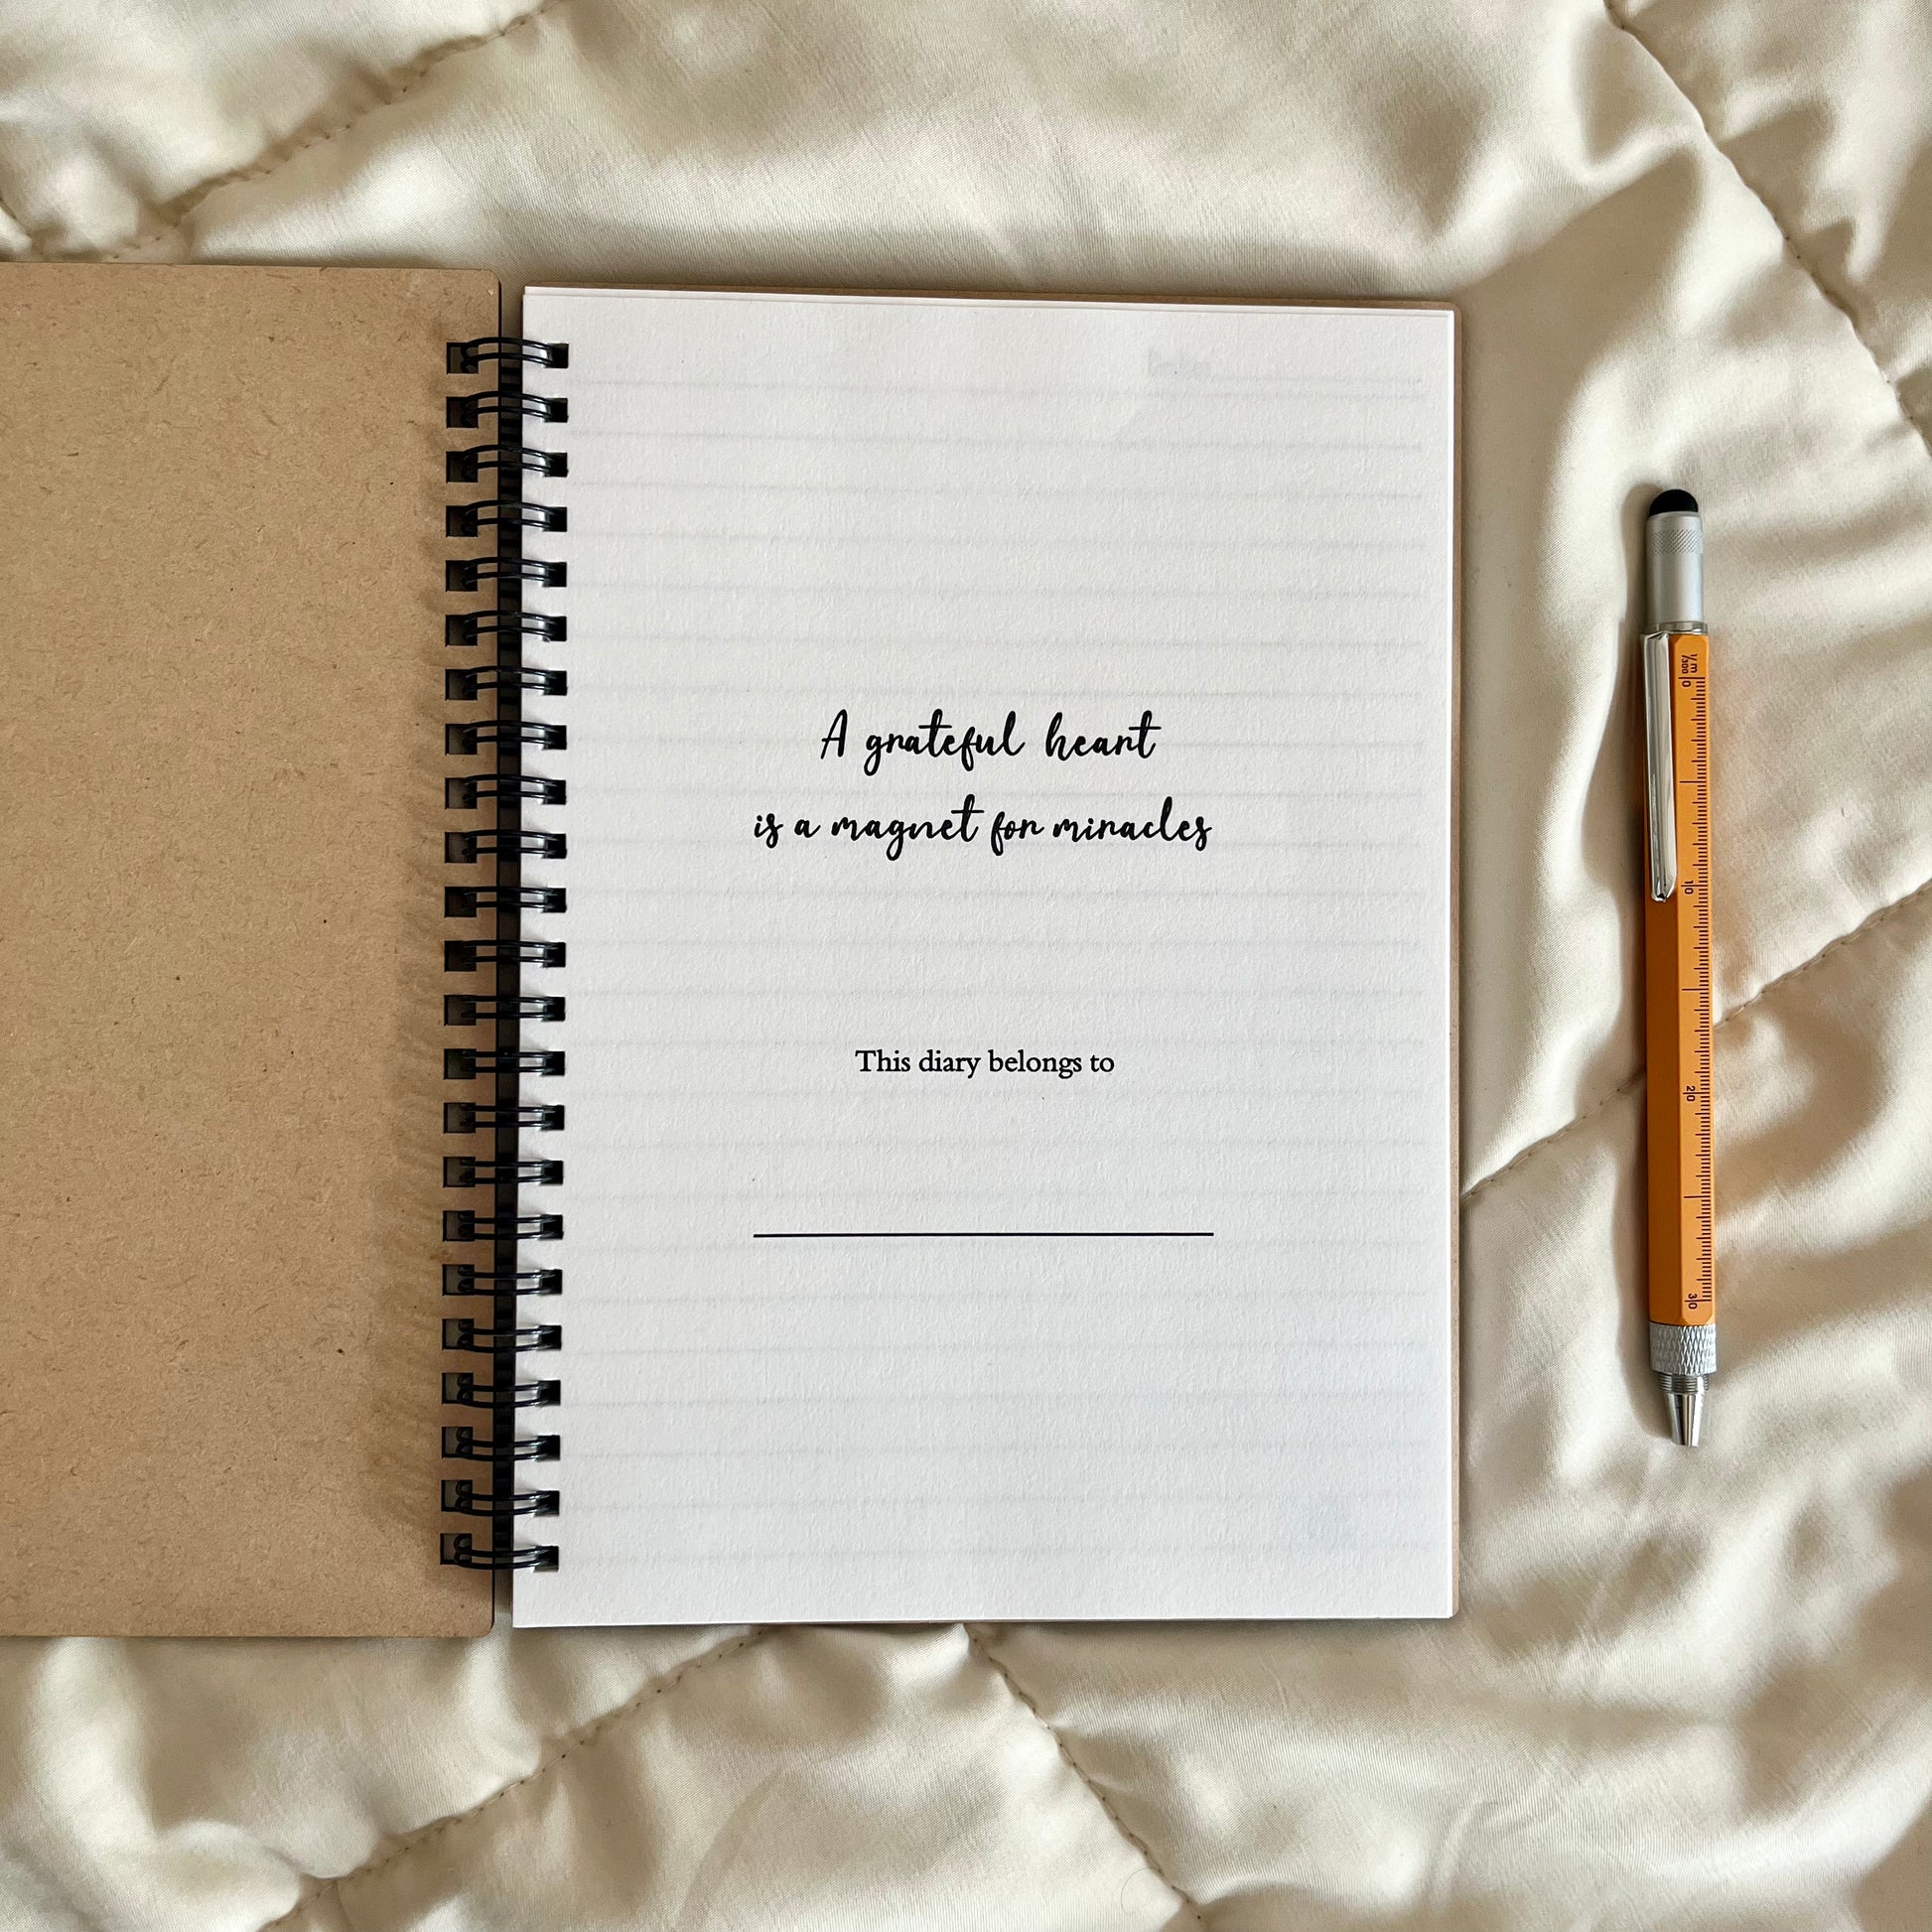 A grateful heart
is a magnet for miracles
This diary belongs to
1/300 m
0
10
20
30